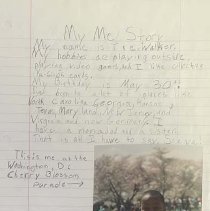 My Me Story
My name is
My hobbies are playing outside
playing video games and I like collecting
cards.
My Birthday is May 30th
I've been to a lot of places like
North Carolina Georgia, Kansas,
Texas, Maryland, New Jersey and
Virginia and now
have a
That is all I have to say
This is me at the
Washington, D.C
Cherry Blossom
Parade